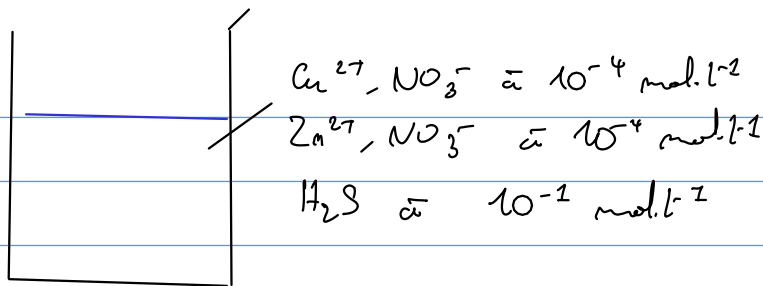 Cu²⁺, NO₃⁻ à 10⁻⁴ mol.l⁻¹
Zn²⁺, NO₃⁻ à 10⁻⁴ mol.l⁻¹
H₂S à 10⁻¹ mol.l⁻¹